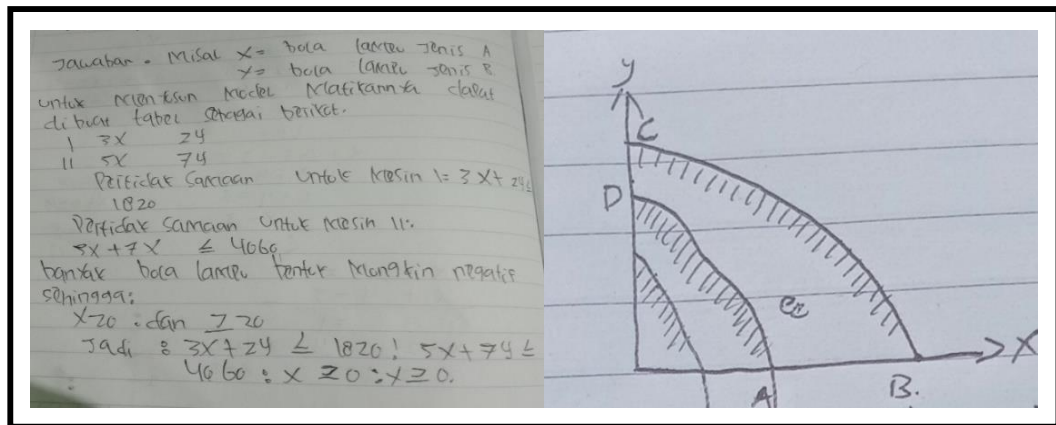 Jawaban. Misal x= bola lampu Jenis A
y= bola lampu Jenis B
untuk Menysun Model Matikannya dapat
dibuat tabel sebagai berikut.
I 3x 2y
II 5x 7y
Pertidak Samaan untuk Mesin I= 3x+2y≤
1820
Pertidak Samaan untuk Mesin II:
5x+7x ≤ 4060
banyak bola lampu tentuk Mungkin negatif
sehingga:
x≥0 : dan ≥0
Jadi : 3x+2y ≤ 1820! 5x+7y ≤
4060 : x ≥0 : y≥0.
y
C
D
A
B.
X